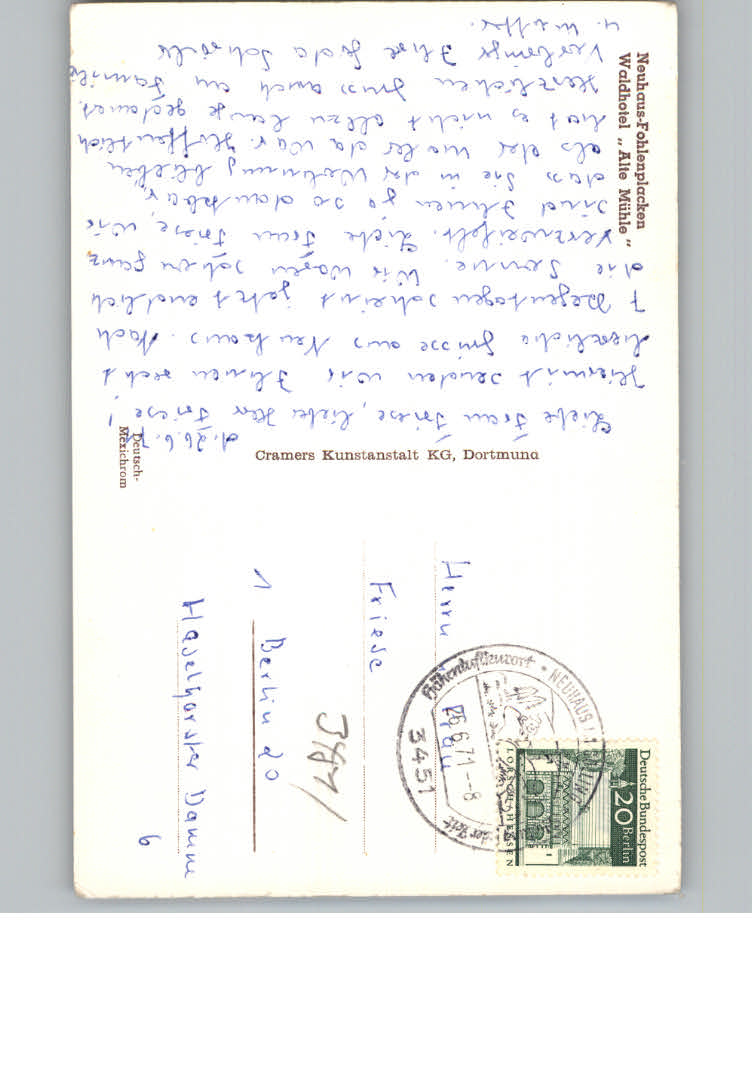 Neuhaus-Fohlenplacken
Waldhotel „Alte Mühle"
d. 26.6.71
Liebe Frau Friese, lieber Herr Friese!
Hiermit senden wir Ihnen recht
herzliche Grüsse aus Neuhaus. Nach
7 Regentagen scheint jetzt endlich
die Sonne. Wir waren schon ganz
verzweifelt. Liebe Frau Friese, wir
sind Ihnen ja so dankbar,
dass Sie in der Wohnung blieben
als der Maler da war. Hoffentlich
hat es nicht allzu lange gedauert.
Herzlichen Gruss auch an Familie
Verbringe Ihre
u. Mutter.
Deutsch-
Mexichrom
Cramers Kunstanstalt KG, Dortmund
Herrn
Frau
Friese
1 Berlin 20
Haselhorster Damm
6
3451
26.6.71-8
Höhenluftkurort
NEUHAUS
Deutsche Bundespost
20 Berlin
LORSCH/HESSEN